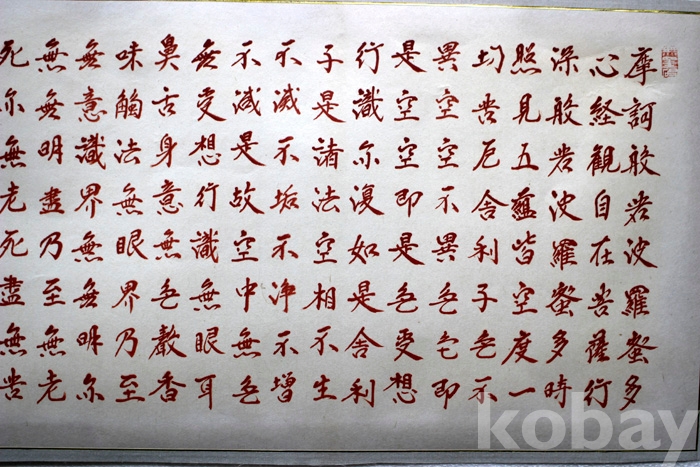 摩訶般若波羅蜜多
心経觀自在菩薩行
深般若波羅蜜多時
照見五蘊皆空度一
切苦厄舍利子色不
異空空不異色色即
是空空即是色受想
行識亦復如是舍利
子是諸法空相不生
不滅不垢不净不增
不滅是故空中無色
無受想行識無眼耳
鼻舌身意無色聲香
味觸法無眼界乃至
無意識界無無明亦
無無明盡乃至無老
死亦無老死盡無苦
kobay